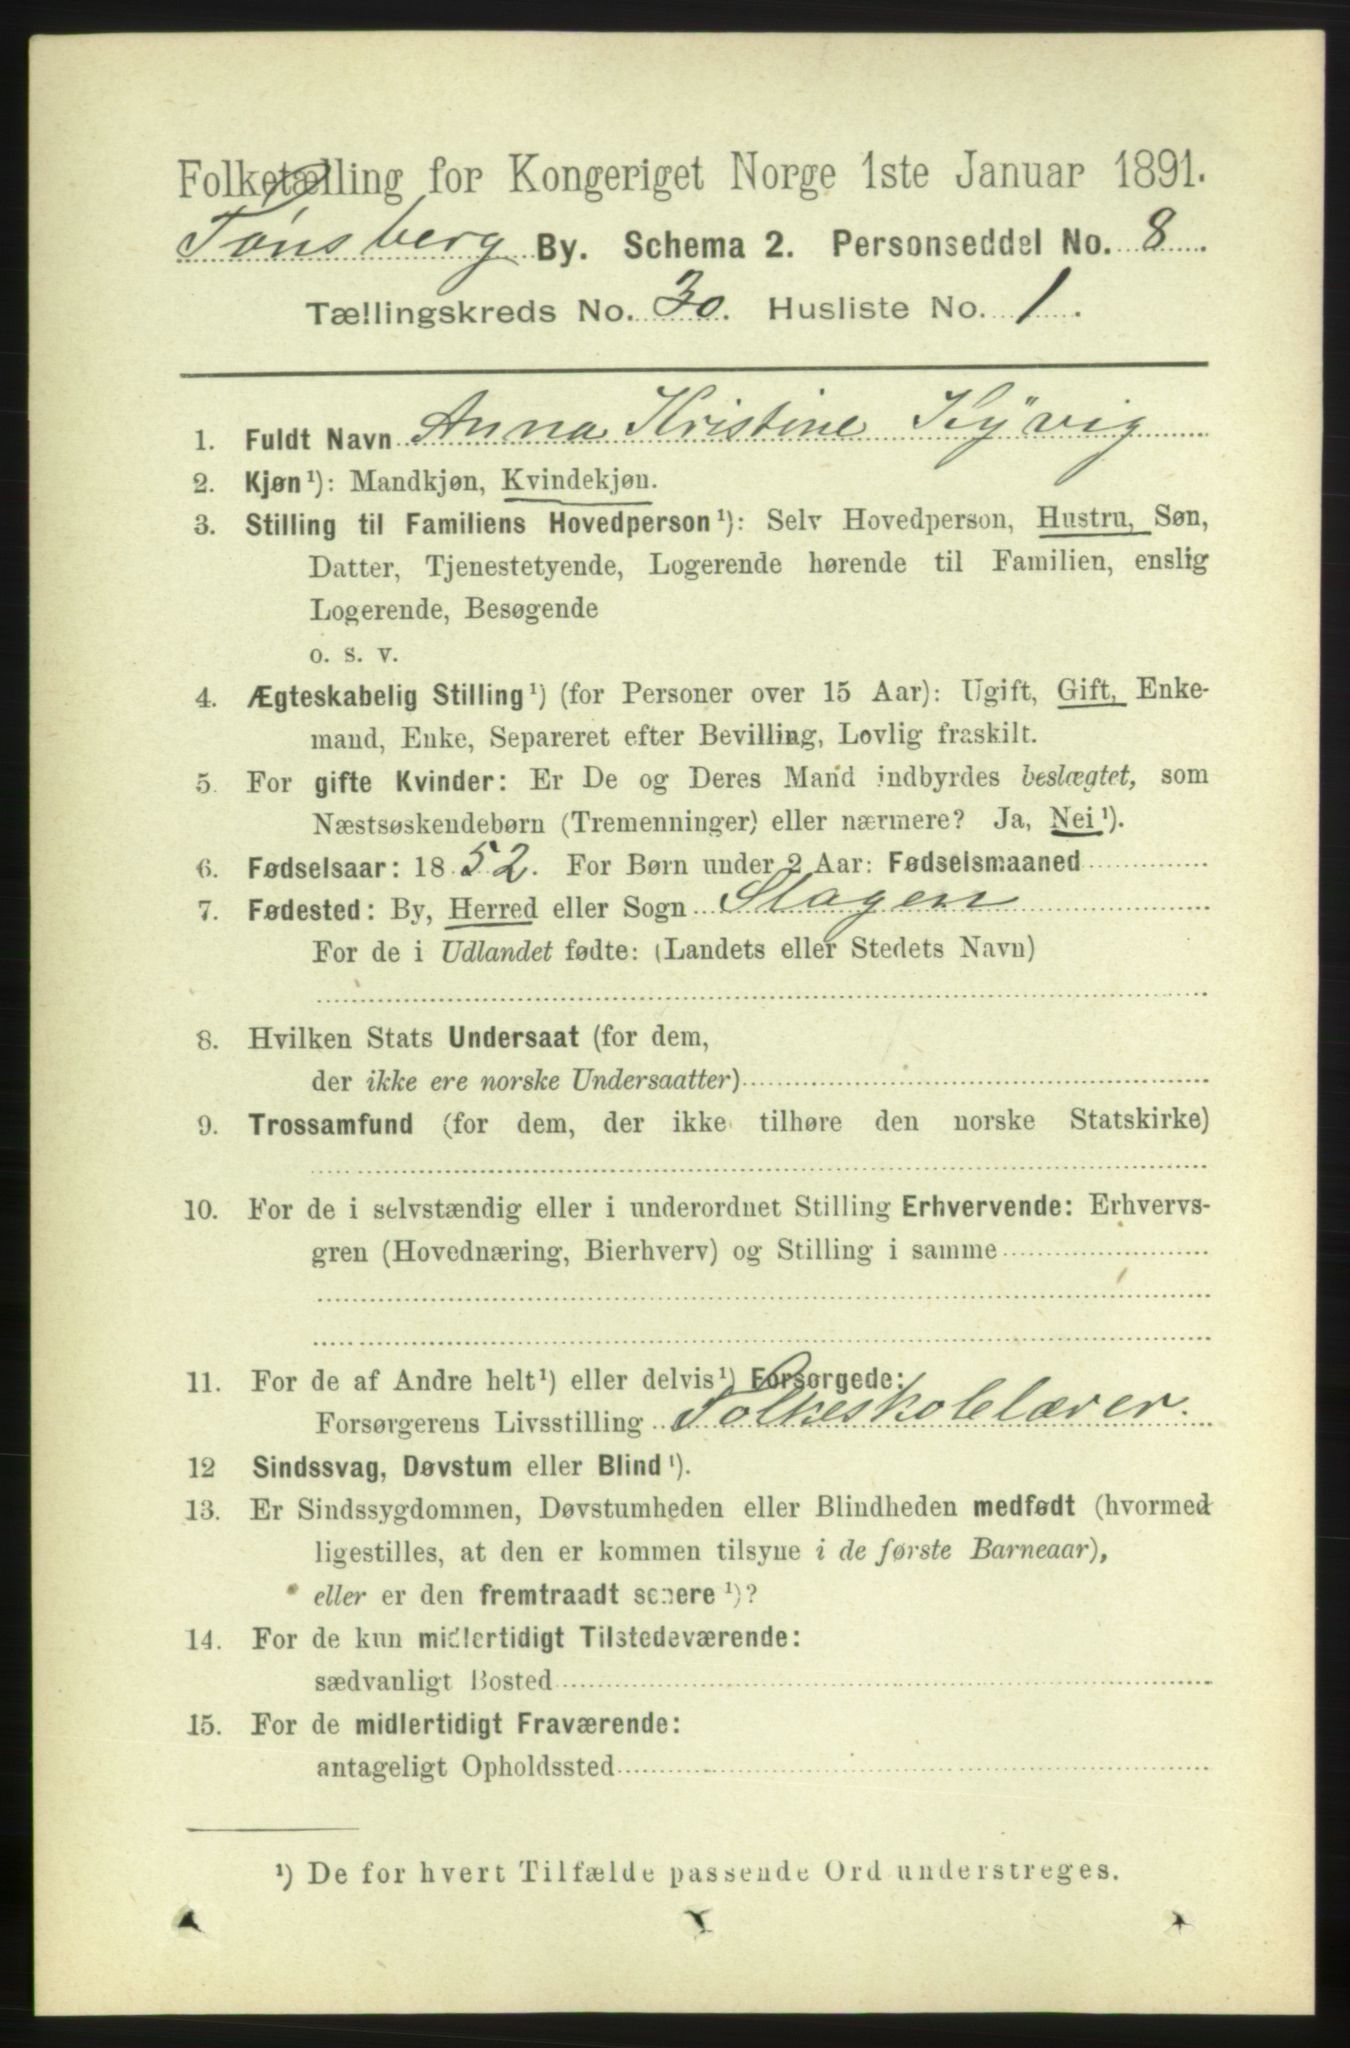 Folketælling for Kongeriget Norge 1ste Januar 1891.
Tønsberg By. Schema 2. Personseddel No. 8.
Tællingskreds No. 30. Husliste No. 1.
1. Fuldt Navn Anna Kristine Kÿvig
2. Kjøn¹): Mandkjøn, Kvindekjøn.
3. Stilling til Familiens Hovedperson¹): Selv Hovedperson, Hustru, Søn,
Datter, Tjenestetyende, Logerende hørende til Familien, enslig
Logerende, Besøgende
o. s. v.
4. Ægteskabelig Stilling¹) (for Personer over 15 Aar): Ugift, Gift, Enke-
mand, Enke, Separeret efter Bevilling, Lovlig fraskilt.
5. For gifte Kvinder: Er De og Deres Mand indbyrdes beslægtet, som
Næstsøskendebørn (Tremenninger) eller nærmere? Ja, Nei¹).
6. Fødselsaar: 1852. For Børn under 2 Aar: Fødselsmaaned
7. Fødested: By, Herred eller Sogn Slagen
For de i Udlandet fødte: (Landets eller Stedets Navn)
8. Hvilken Stats Undersaat (for dem,
der ikke ere norske Undersaatter)
9. Trossamfund (for dem, der ikke tilhøre den norske Statskirke)
10. For de i selvstændig eller i underordnet Stilling Erhvervende: Erhvervs-
gren (Hovednæring, Bierhverv) og Stilling i samme
11. For de af Andre helt¹) eller delvis¹) Forsørgede:
Forsørgerens Livsstilling Folkeskolelærer.
12 Sindssvag, Døvstum eller Blind¹).
13. Er Sindssygdommen, Døvstumheden eller Blindheden medfødt (hvormed
ligestilles, at den er kommen tilsyne i de første Barneaar),
eller er den fremtraadt senere¹)?
14. For de kun midlertidigt Tilstedeværende:
sædvanligt Bosted
15. For de midlertidigt Fraværende:
antageligt Opholdssted
¹) De for hvert Tilfælde passende Ord understreges.